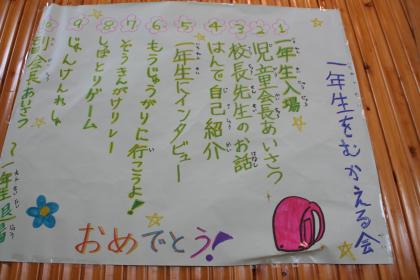 一年生をむかえる会
1 一年生入場
2 児童会長あいさつ
3 校長先生のお話
4 はんで自己紹介
5 一年生にインタビュー
6 もうじゅうがりに行こうよ!
7 ぞうきんがけリレー
8 しっぽとりゲーム
9 じゃんけんれっしゃ
会長あいさつ
おめでとう!